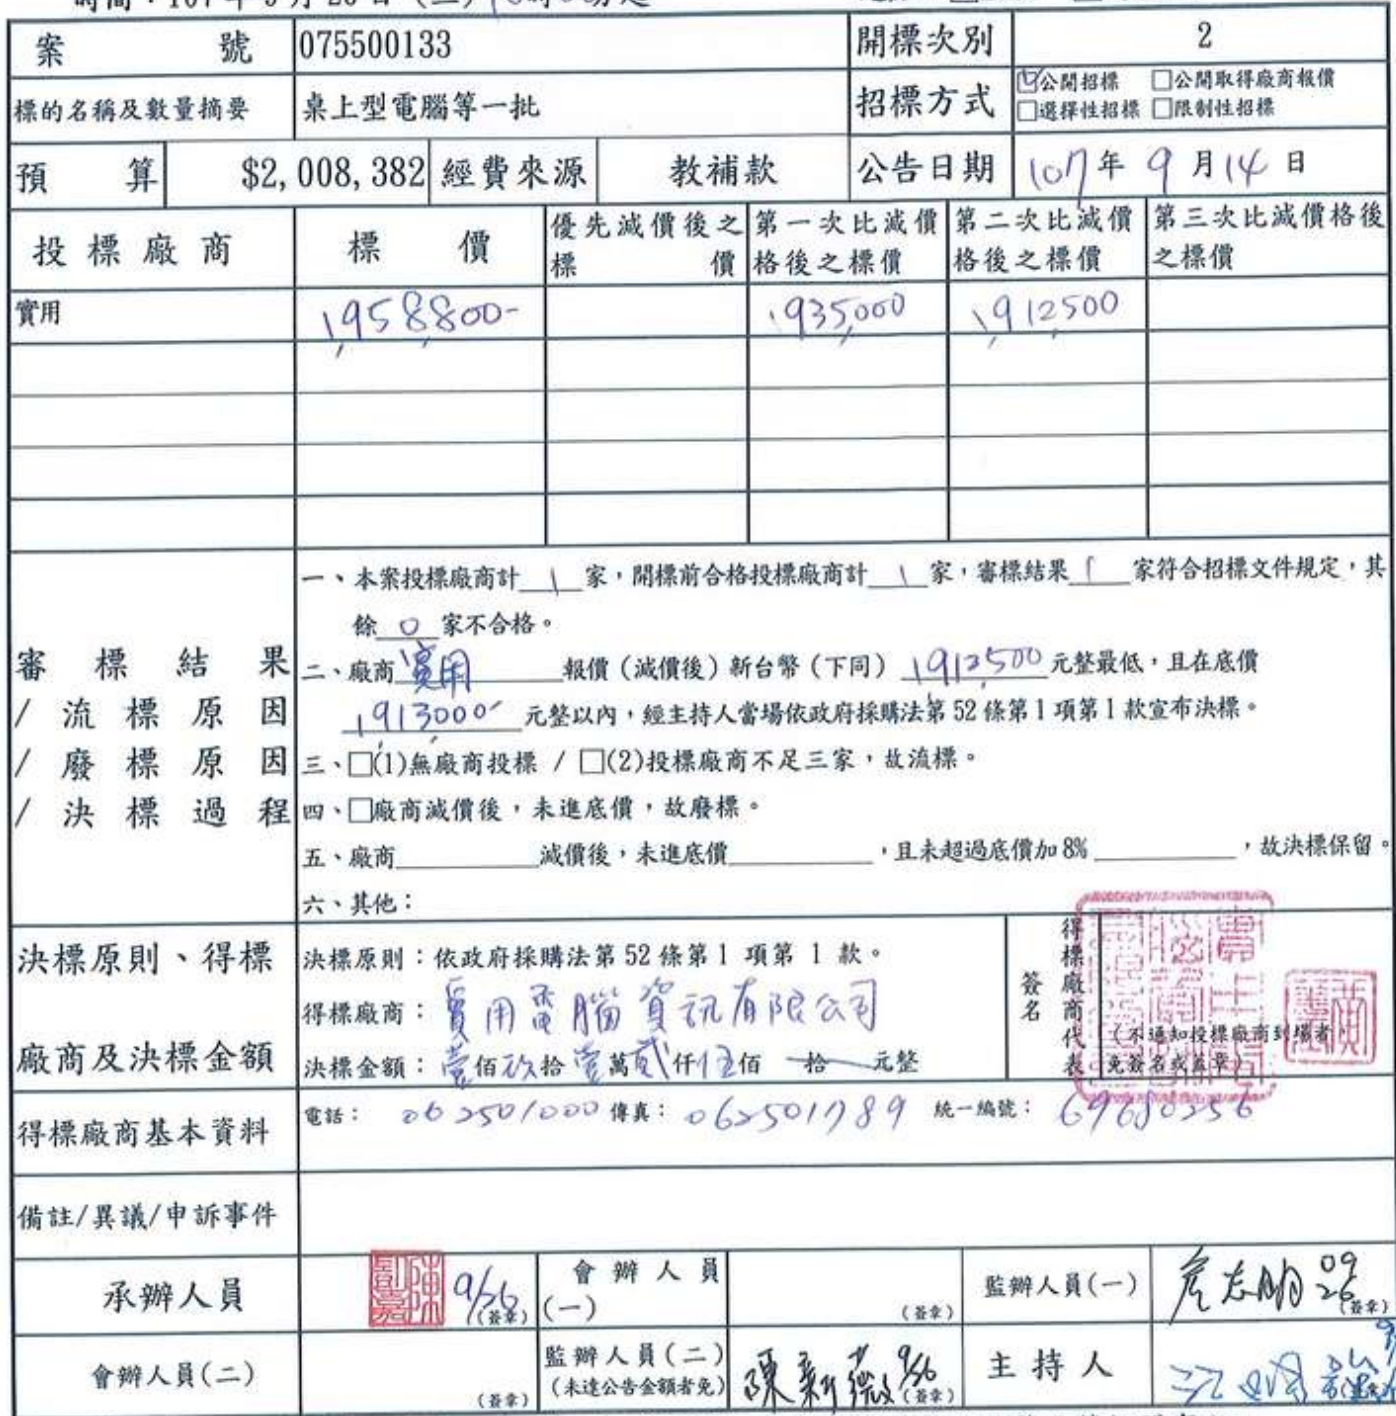 時間：107年9月26日（三）
案號 075500133 開標次別 2
標的名稱及數量摘要 桌上型電腦等一批 招標方式 ☑公開招標 □公開取得廠商報價
□選擇性招標 □限制性招標
預算 $2,008,382 經費來源 教補款 公告日期 107年9月14日
投標廠商 標價 優先減價後之標價 第一次比減價格後之標價 第二次比減價格後之標價 第三次比減價格後之標價
實用 1,958,800- 1,935,000 1,912,500
審標結果
/流標原因
/廢標原因
/決標過程
一、本案投標廠商計 1 家，開標前合格投標廠商計 1 家，審標結果 1 家符合招標文件規定，其
餘 0 家不合格。
二、廠商 實用 報價（減價後）新台幣（下同） 1,912,500 元整最低，且在底價
1,913,000- 元整以內，經主持人當場依政府採購法第52條第1項第1款宣布決標。
三、□(1)無廠商投標 / □(2)投標廠商不足三家，故流標。
四、□廠商減價後，未進底價，故廢標。
五、廠商 減價後，未進底價 ，且未超過底價加8% ，故決標保留。
六、其他：
決標原則、得標
廠商及決標金額
決標原則：依政府採購法第52條第1項第1款。
得標廠商：實用電腦資訊有限公司
決標金額：壹佰玖拾壹萬貳仟伍佰 拾 元整
得標廠商代表
簽名
（不通知投標廠商到場者，
免簽名或蓋章）
得標廠商基本資料 電話：062501000 傳真：062501789 統一編號：69680256
備註/異議/申訴事件
承辦人員 9/26 (簽章) 會辦人員(一) (簽章) 監辦人員(一) 09 26 (簽章)
會辦人員(二) (簽章) 監辦人員(二) (未達公告金額者免) 陳新薇 9/26 (簽章) 主持人